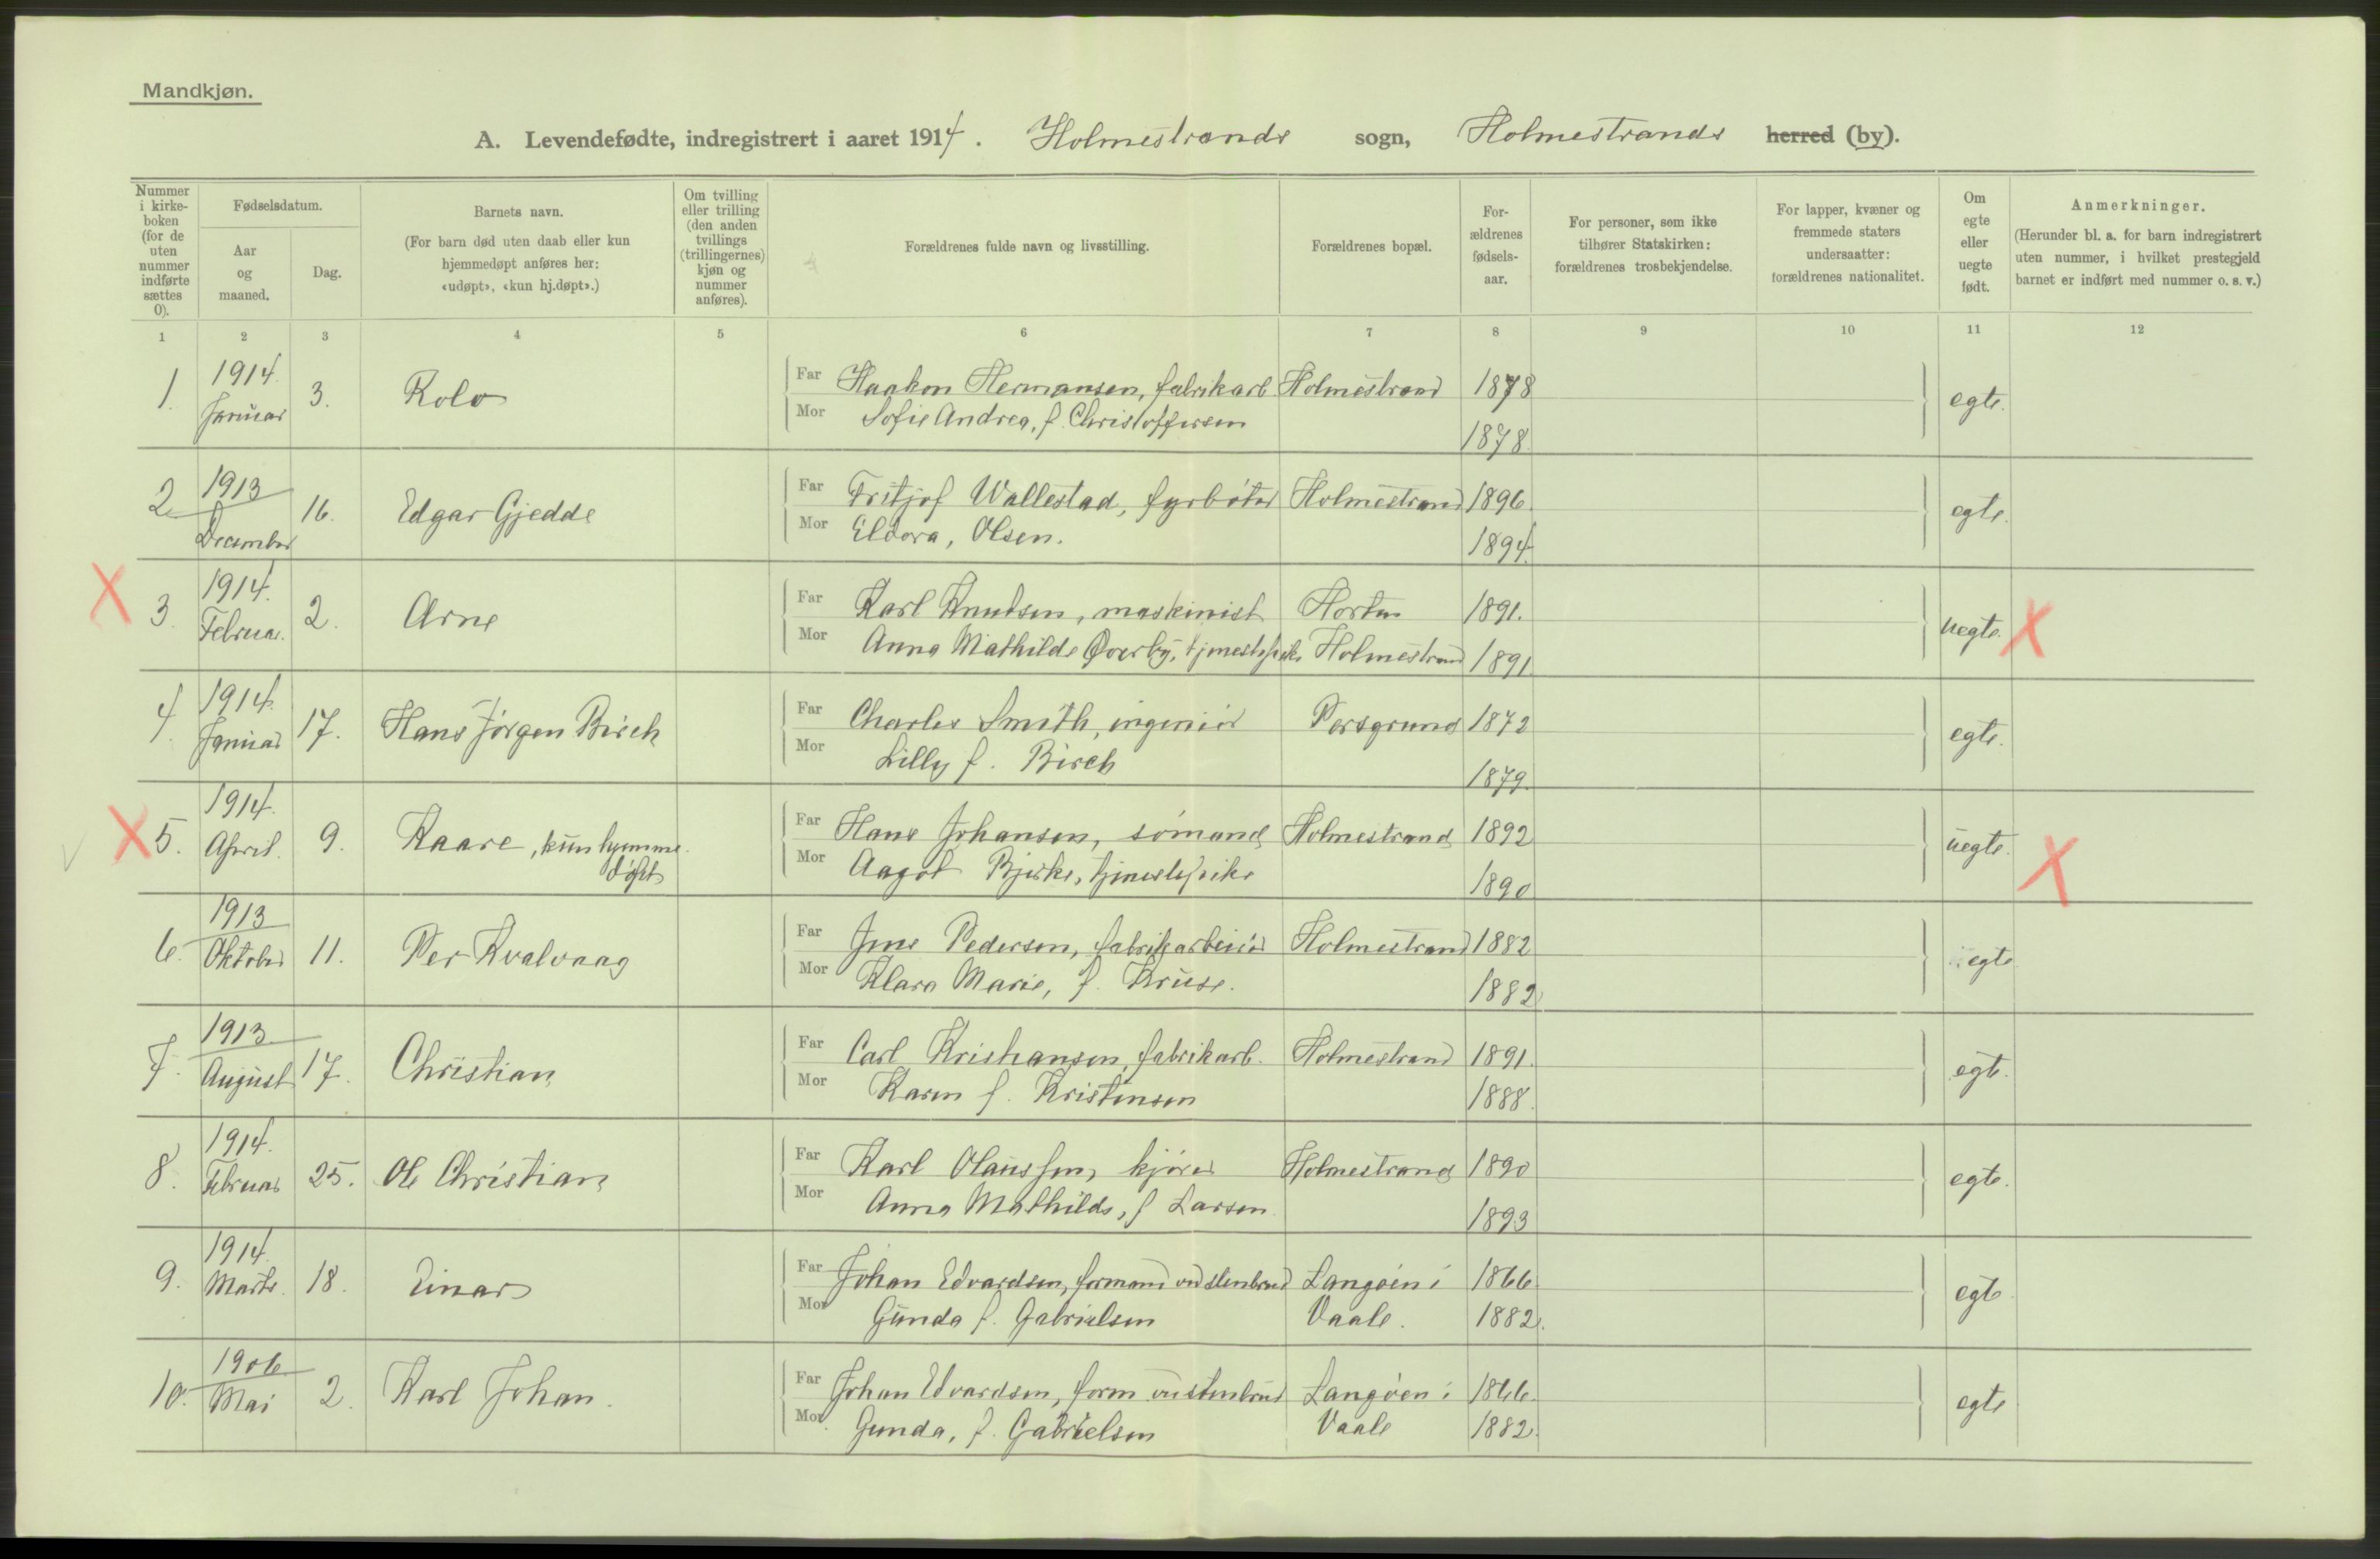 Mandkjøn.
A. Levendefødte, indregistrert i aaret 1914. Holmestrands sogn, Holmestrands herred (by).
Nummer i kirke-boken (for de uten nummer indførte sættes 0).
Fødselsdatum.
Aar og maaned.
Dag.
Barnets navn.
(For barn død uten daab eller kun hjemmedøpt anføres her: «udøpt», «kun hj.døpt».)
Om tvilling eller trilling (den anden tvillings (trillingernes) kjøn og nummer anføres).
Forældrenes fulde navn og livsstilling.
Forældrenes bopæl.
For-ældrenes fødsels-aar.
For personer, som ikke tilhører Statskirken: forældrenes trosbekjendelse.
For lapper, kvæner og fremmede staters undersaatter: forældrenes nationalitet.
Om egte eller uegte født.
Anmerkninger.
(Herunder bl. a. for barn indregistrert uten nummer, i hvilket prestegjeld barnet er indført med nummer o. s. v.)
1 2 3 4 5 6 7 8 9 10 11 12
1. 1914. Januar 3. Rolv
Far Haakon Hermansen, fabrikarb Holmestrand 1878 egte.
Mor Sofie Andrea, f. Christoffersen 1878.
2. 1913 December 16. Edgar Gjedde
Far Fritjof Wallestad, fyrbøter Holmestrand 1896. egte.
Mor Eldora, Olsen. 1894.
X 3. 1914. Februar. 2. Arne
Far Karl Knutsen, maskinist Horten 1891. uegte. X
Mor Anna Mathilde Øverby, tjenestepike Holmestrand 1891.
4. 1914. Januar 17. Hans Jørgen Birch
Far Charles Smith, ingeniør Porsgrund 1872 egte.
Mor Lilly f. Birch 1879.
X 5. 1914. April. 9. Kaare, kun hjemme døpt
Far Hans Johansen, sømand Holmestrand 1892 uegte. X
Mor Aagot Bjerke, tjenestepike 1890
6. 1913 Oktober 11. Per Kvalvaag
Far Jens Pedersen, fabrikarbeider Holmestrand 1882 egte
Mor Klara Marie, f. Kruse. 1882
7. 1913 August 17. Christian
Far Carl Kristiansen, fabrikarb. Holmestrand 1891. egte.
Mor Karen f. Kristensen 1888.
8. 1914. Februar 25. Ole Christian
Far Karl Olaussen, kjører Holmestrand 1890 egte.
Mor Anna Mathilde, f Larsen 1893
9. 1914. Marts. 18. Einar
Far Johan Edvardsen, formand ved stenbrud Langøen i 1866. egte
Mor Gunda f. Gabrielsen Vaale. 1882.
10. 1906. Mai 2. Karl Johan.
Far Johan Edvardsen, form. ved stenbrud Langøen i 1866. egte
Mor Gunda, f. Gabrielsen Vaale 1882.